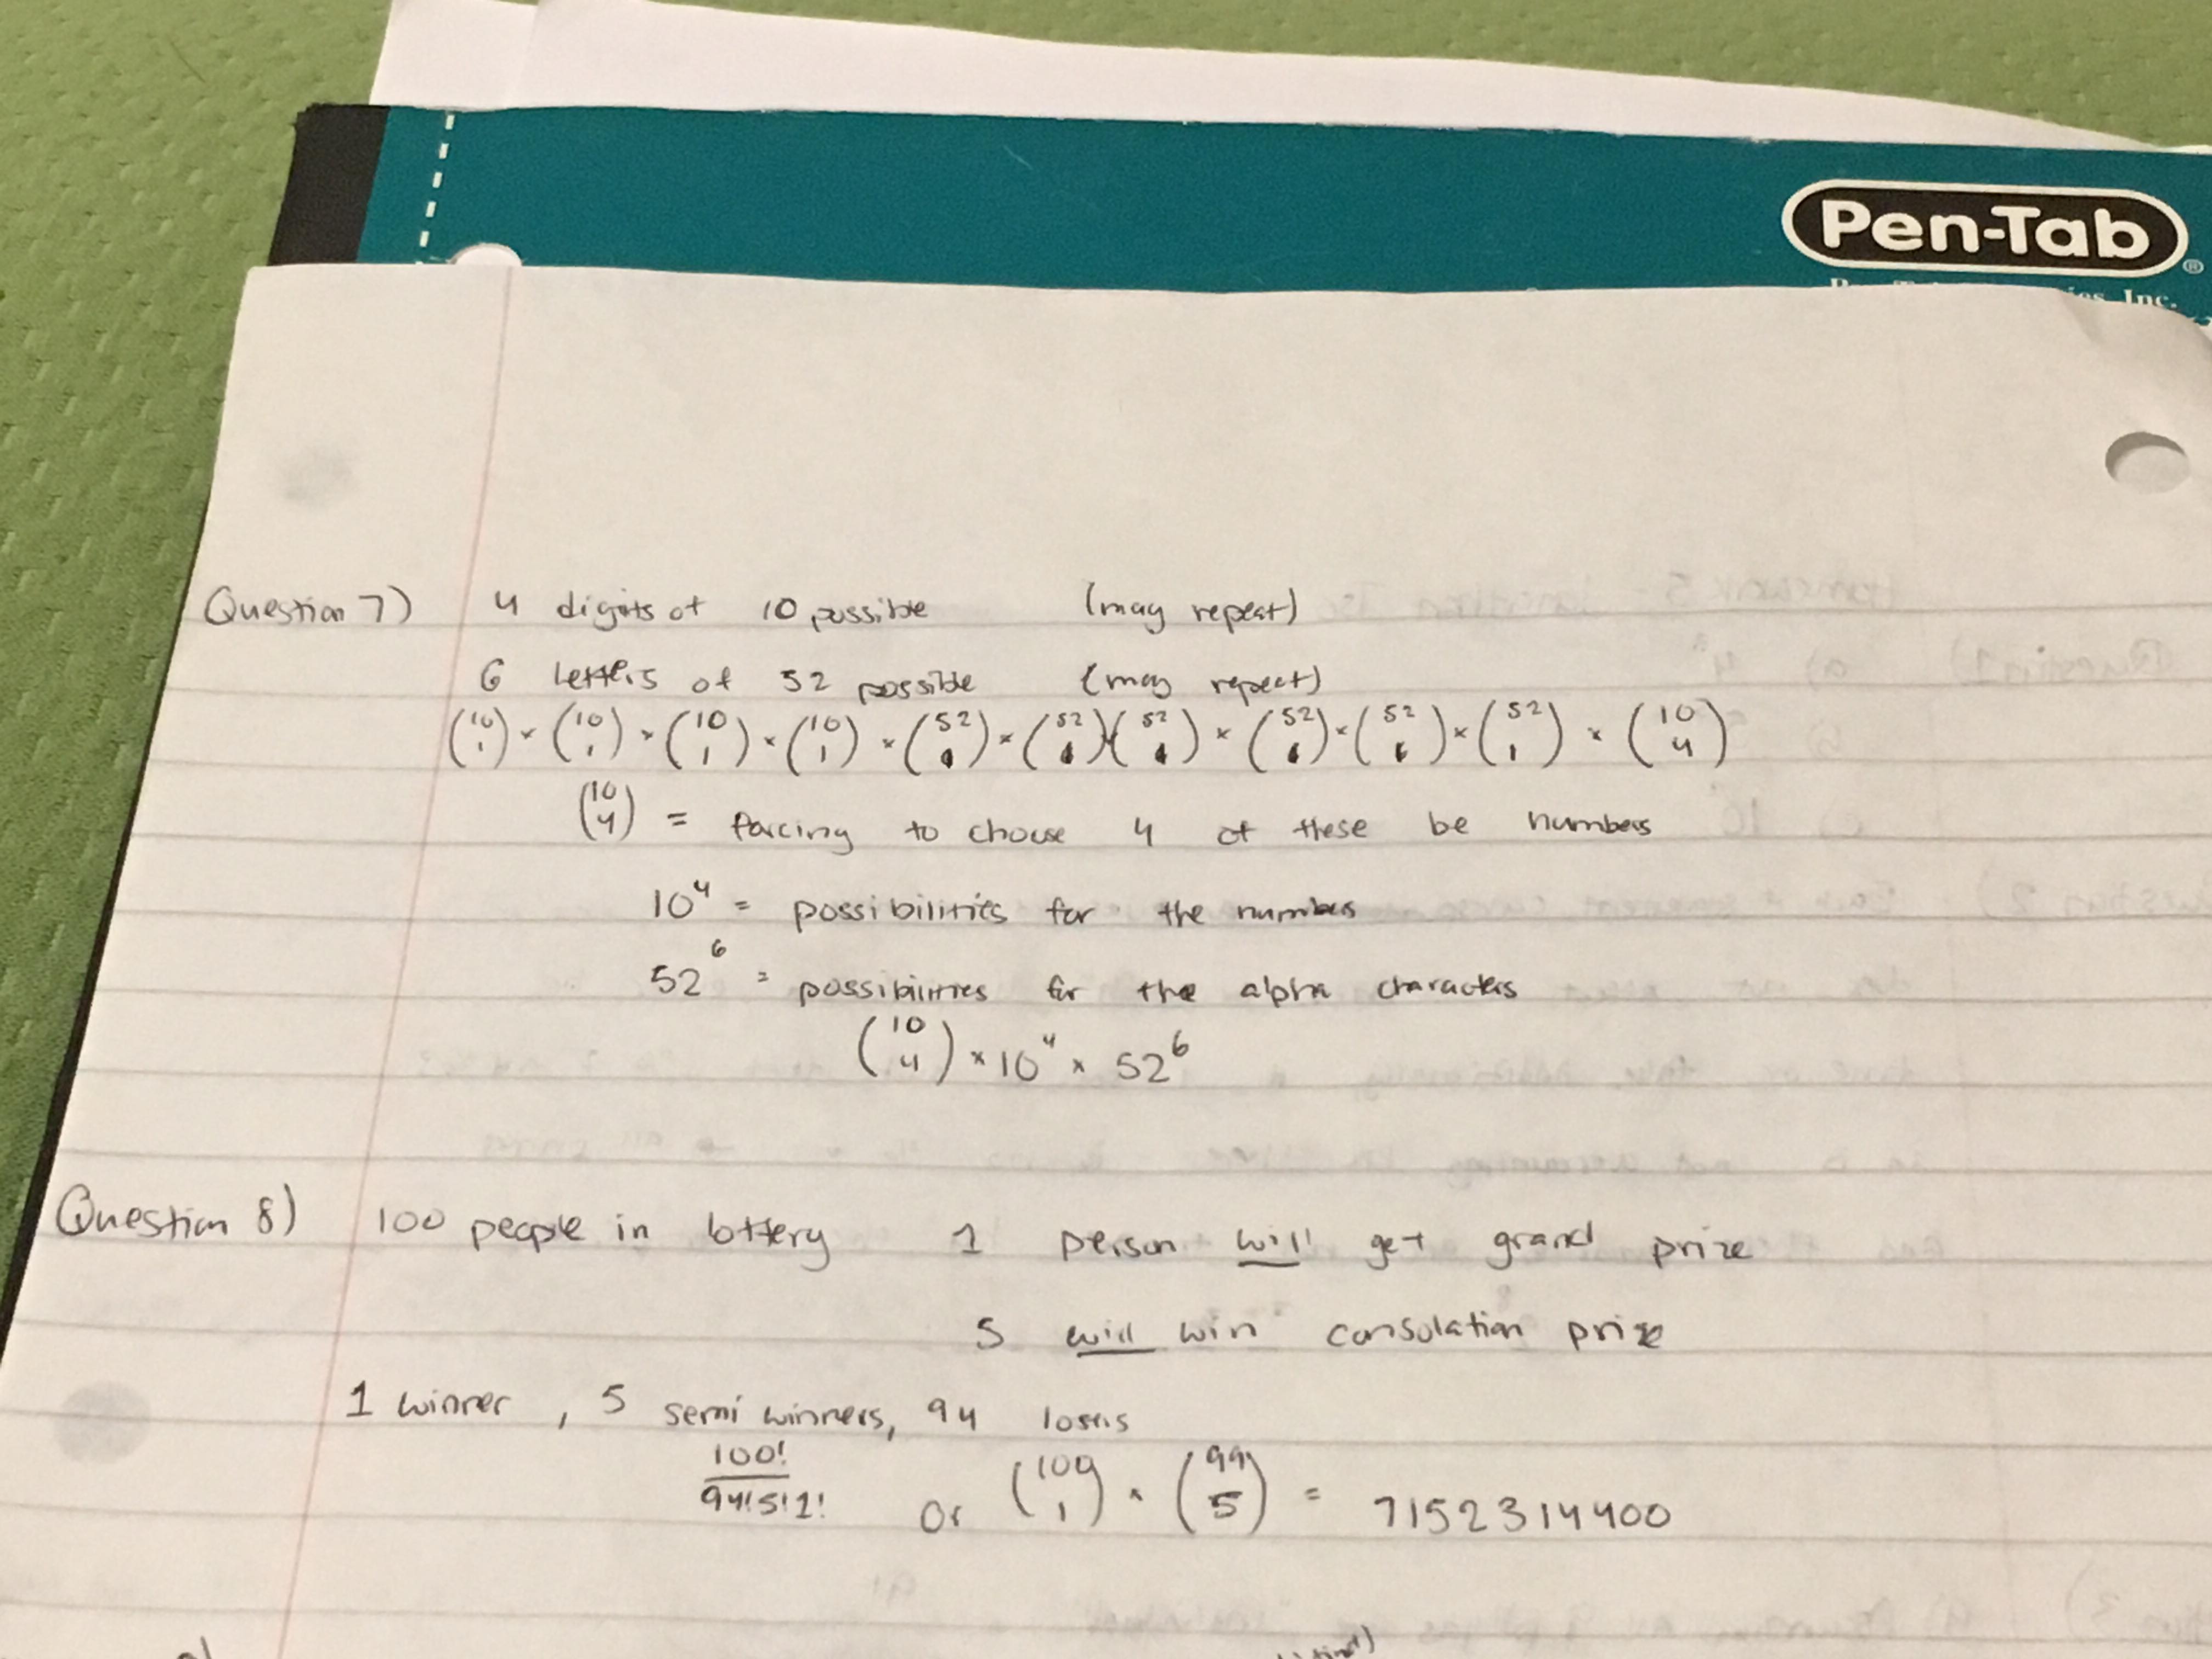 Pen-Tab®
Inc.
Question 7) 4 digits of 10 possible (may repeat)
6 letters of 52 possible (may repeat)
(10 1) × (10 1) × (10 1) × (10 1) × (52 1) × (52 1) × (52 1) × (52 1) × (52 1) × (52 1) × (10 4)
(10 4) = forcing to choose 4 of these be numbers
10^4 = possibilities for the numbers
52^6 = possibilities for the alpha characters
(10 4) × 10^4 × 52^6
Question 8) 100 people in lottery 1 person will get grand prize
5 will win consolation prize
1 winner, 5 semi winners, 94 losers
100!/94!5!1! or (100 1) × (99 5) = 7152314400